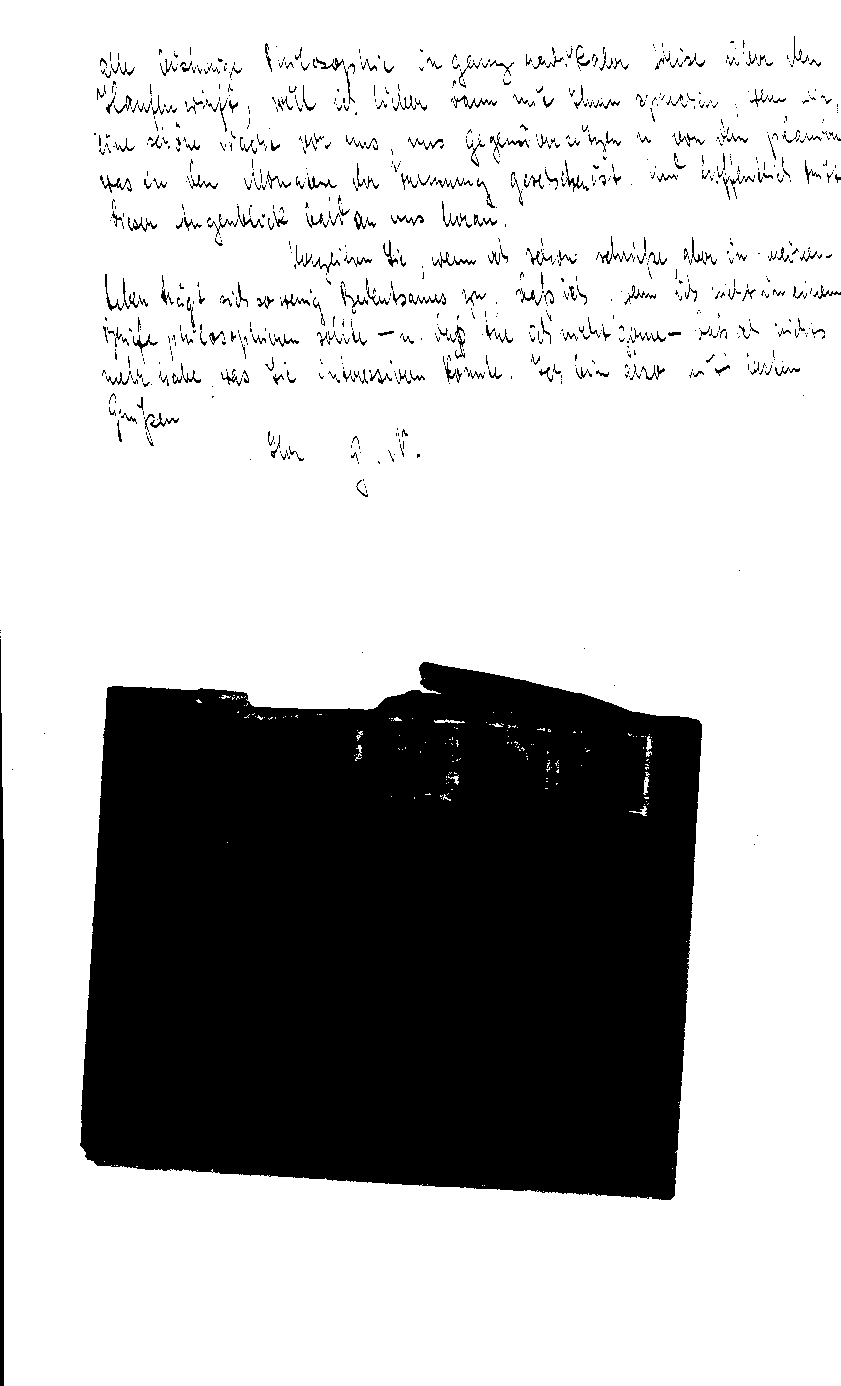 alle bisherige Philosophie in ganz radikaler Weise über den
Haufen wirft, will ich lieber dann mit Ihnen sprechen, wenn wir,
eine schöne Nacht vor uns, uns gegenübersitzen u von den
was in den Monaten der Trennung geschehen ist. Und hoffentlich tritt
dieser Augenblick bald an uns heran.
Verzeihen Sie, wenn ich schon schließe aber in meinem
Leben trägt sich so wenig Bedeutsames zu, daß ich, wenn ich nicht in einem
Briefe philosophieren sollte – u. daß tue ich nicht gerne – daß ich nichts
mehr habe, was Sie interessieren könnte. Ich bin also mit
Grüßen
Ihr G. N.